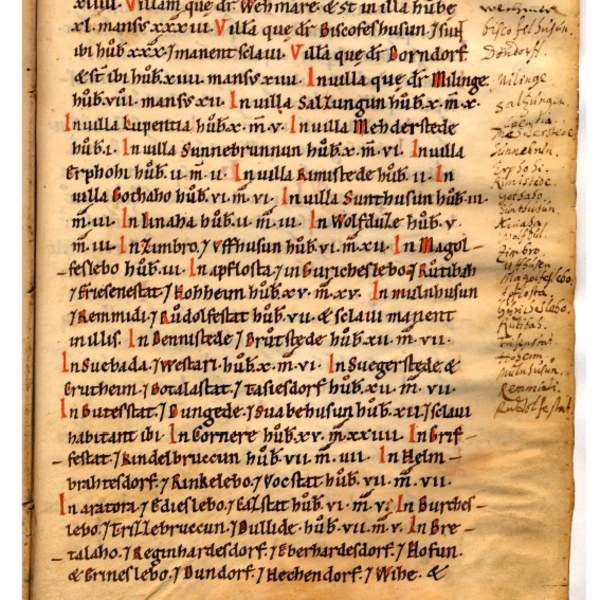 xɪɪɪɪ. Villam que dr̄ Wehmare. & st̄ in illa hůbę
xl. mansꝰ xxx iii. Villa que dr̄ Biscofeshusun. ⁊ sunt
ibi hůb̄ xxx. ⁊ manent sclaui. Villa que dr̄ Dorndorf.
& st̄ ibi hůb̄. xiiii. mansꝰ xviii. In villa que dr̄ Milinge.
hůb̄. viii. mansꝰ xii. In villa Salzungun hůb̄. x. m̄. x.
In villa Lupentia hůb̄. x. m̄. v. In villa Mehderstede
hůb̄. i. In villa Sunnebrunnun hůb̄. x. m̄. vi. In villa
Erphohi hůb̄. ii. m̄. ii. In villa Rimistede hůb̄. ii. In
villa Gothaho hůb̄. vi. m̄. vi. In villa Sunthusun hůb̄. iii.
m̄. iii. In Linaha hůb̄. ii. m̄. iii. In Wolfdule hůb̄. v.
m̄. iii. In Zimbro. ⁊ Uffhusun hůb̄. vi. m̄. xii. In Magol-
feslebo hůb̄. iii. In apflosta. ⁊ in Guricheslebo ⁊ Rutibah
⁊ Friesenestat. ⁊ Hohheim hůb̄. xv. m̄. xv. In mulnhusun
⁊ Remmidi. ⁊ Růdolfestat hůb̄. vii. & sclaui manent
in illis. In Dennistede. ⁊ Brůtstede hůb̄. xi. m̄. vii.
In Suebada. ⁊ Westari. hůb̄. x. m̄. vi. In Suegerstede. &
Grutheim. ⁊ Botalastat. ⁊ Tasiesdorf hůb̄. xii. m̄. vii.
In Butesstat. ⁊ Dungede. ⁊ Suabehusun hůb̄. xii. ⁊ sclaui
habitant ibi. In Gornere hůb̄. xv. m̄. xxiiii. In Grif-
festat. ⁊ Kindelbruccun hůb̄. vii. m̄. iiii. In Helm-
brahtesdorf. ⁊ Rinkelebo. ⁊ Vocstat hůb̄. vii. m̄. vii.
In aratora. ⁊ Edieslebo. ⁊ Ealstat hůb̄. vi. m̄. v. In Burches-
lebo. ⁊ Trizlebruccun. ⁊ Bullide. hůb̄. vii. m̄. v. In Bre-
talaho. ⁊ Reginhardesdorf. ⁊ Eberhardesdorf. ⁊ Hofun.
& Grineslebo. ⁊ Dundorf. ⁊ Hechendorf. ⁊ Wihe. &
Wehmare
biscofelhusun.
Dondorff.
Milinge
Salzungen
Lupentia
Mehderstede
Sunnebrun
Erphohi.
Rimistede.
Gothaho.
Sunthusun.
Linaha.
Zimbro.
Uffhusun
Magolfeslebo.
Apflosta
Rutibah.
Hoheim.
Mulnhusun.
Remmidi.
Rudolfestat.